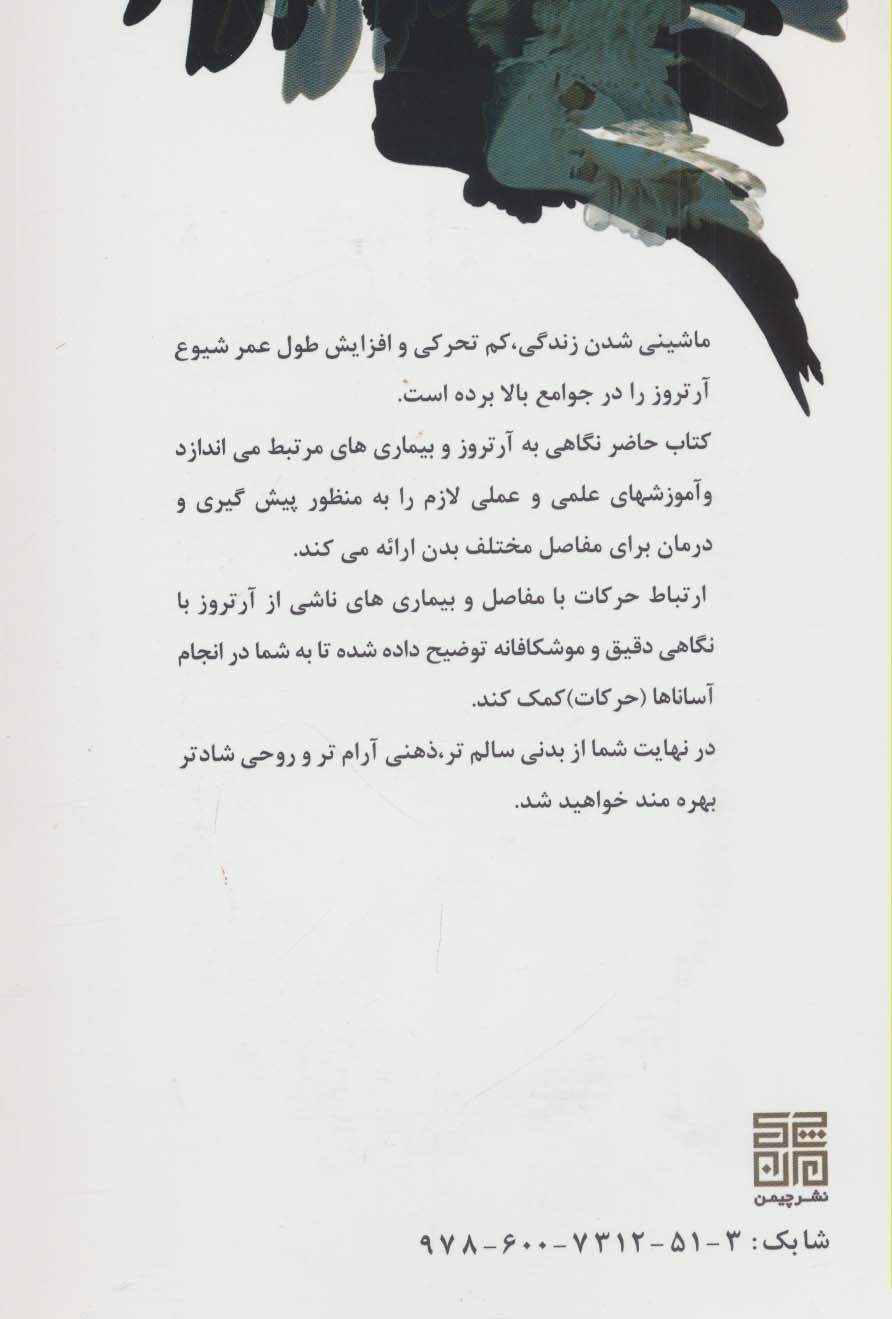 ماشینی شدن زندگی،کم تحرکی و افزایش طول عمر شیوع
آرتروز را در جوامع بالا برده است.
کتاب حاضر نگاهی به آرتروز و بیماری های مرتبط می اندازد
وآموزشهای علمی و عملی لازم را به منظور پیش گیری و
درمان برای مفاصل مختلف بدن ارائه می کند.
ارتباط حرکات با مفاصل و بیماری های ناشی از آرتروز با
نگاهی دقیق و موشکافانه توضیح داده شده تا به شما در انجام
آساناها (حرکات)کمک کند.
در نهایت شما از بدنی سالم تر،ذهنی آرام تر و روحی شادتر
بهره مند خواهید شد.
نشر چیمن
شابک: ۳-۵۱-۷۳۱۲-۶۰۰-۹۷۸